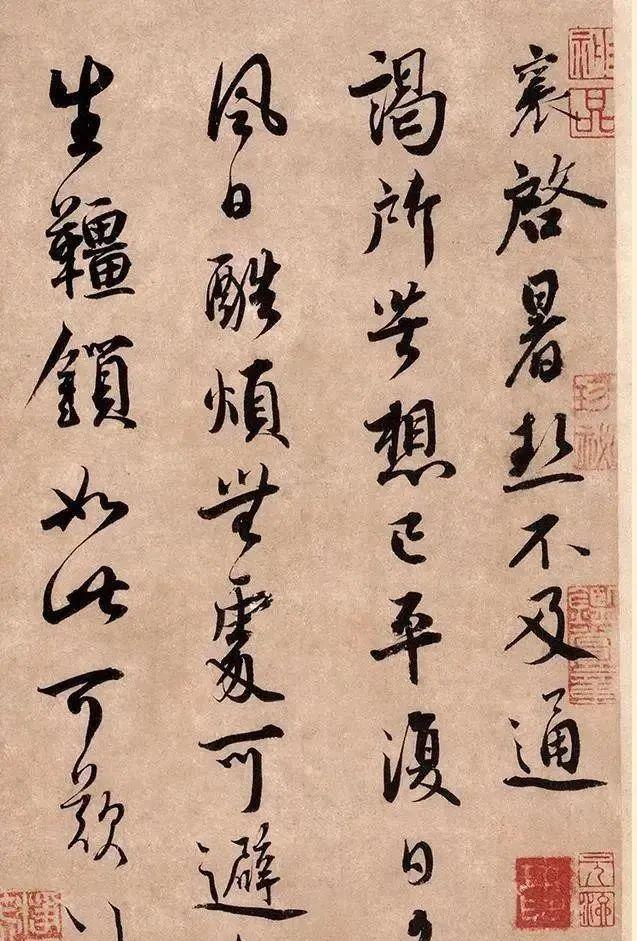 襄啓暑熱不及通
謁所苦想已平復日
風日酷煩無處可避
生韁鎖如此可歎
珍祕